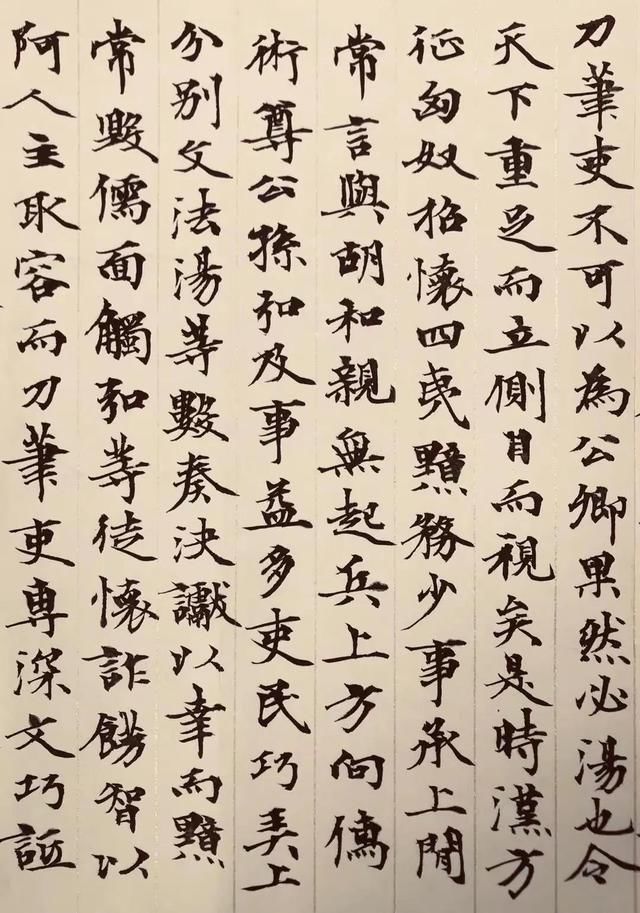 刀筆吏不可以為公卿果然必湯也令
天下重足而立側目而視矣是時漢方
征匈奴招懷四夷黯務少事承上閒
常言與胡和親無起兵上方向儒
術尊公孫弘及事益多吏民巧弄上
分別文法湯等數奏決讞以幸而黯
常毀儒面觸弘等徒懷詐飾智以
阿人主取容而刀筆吏專深文巧詆